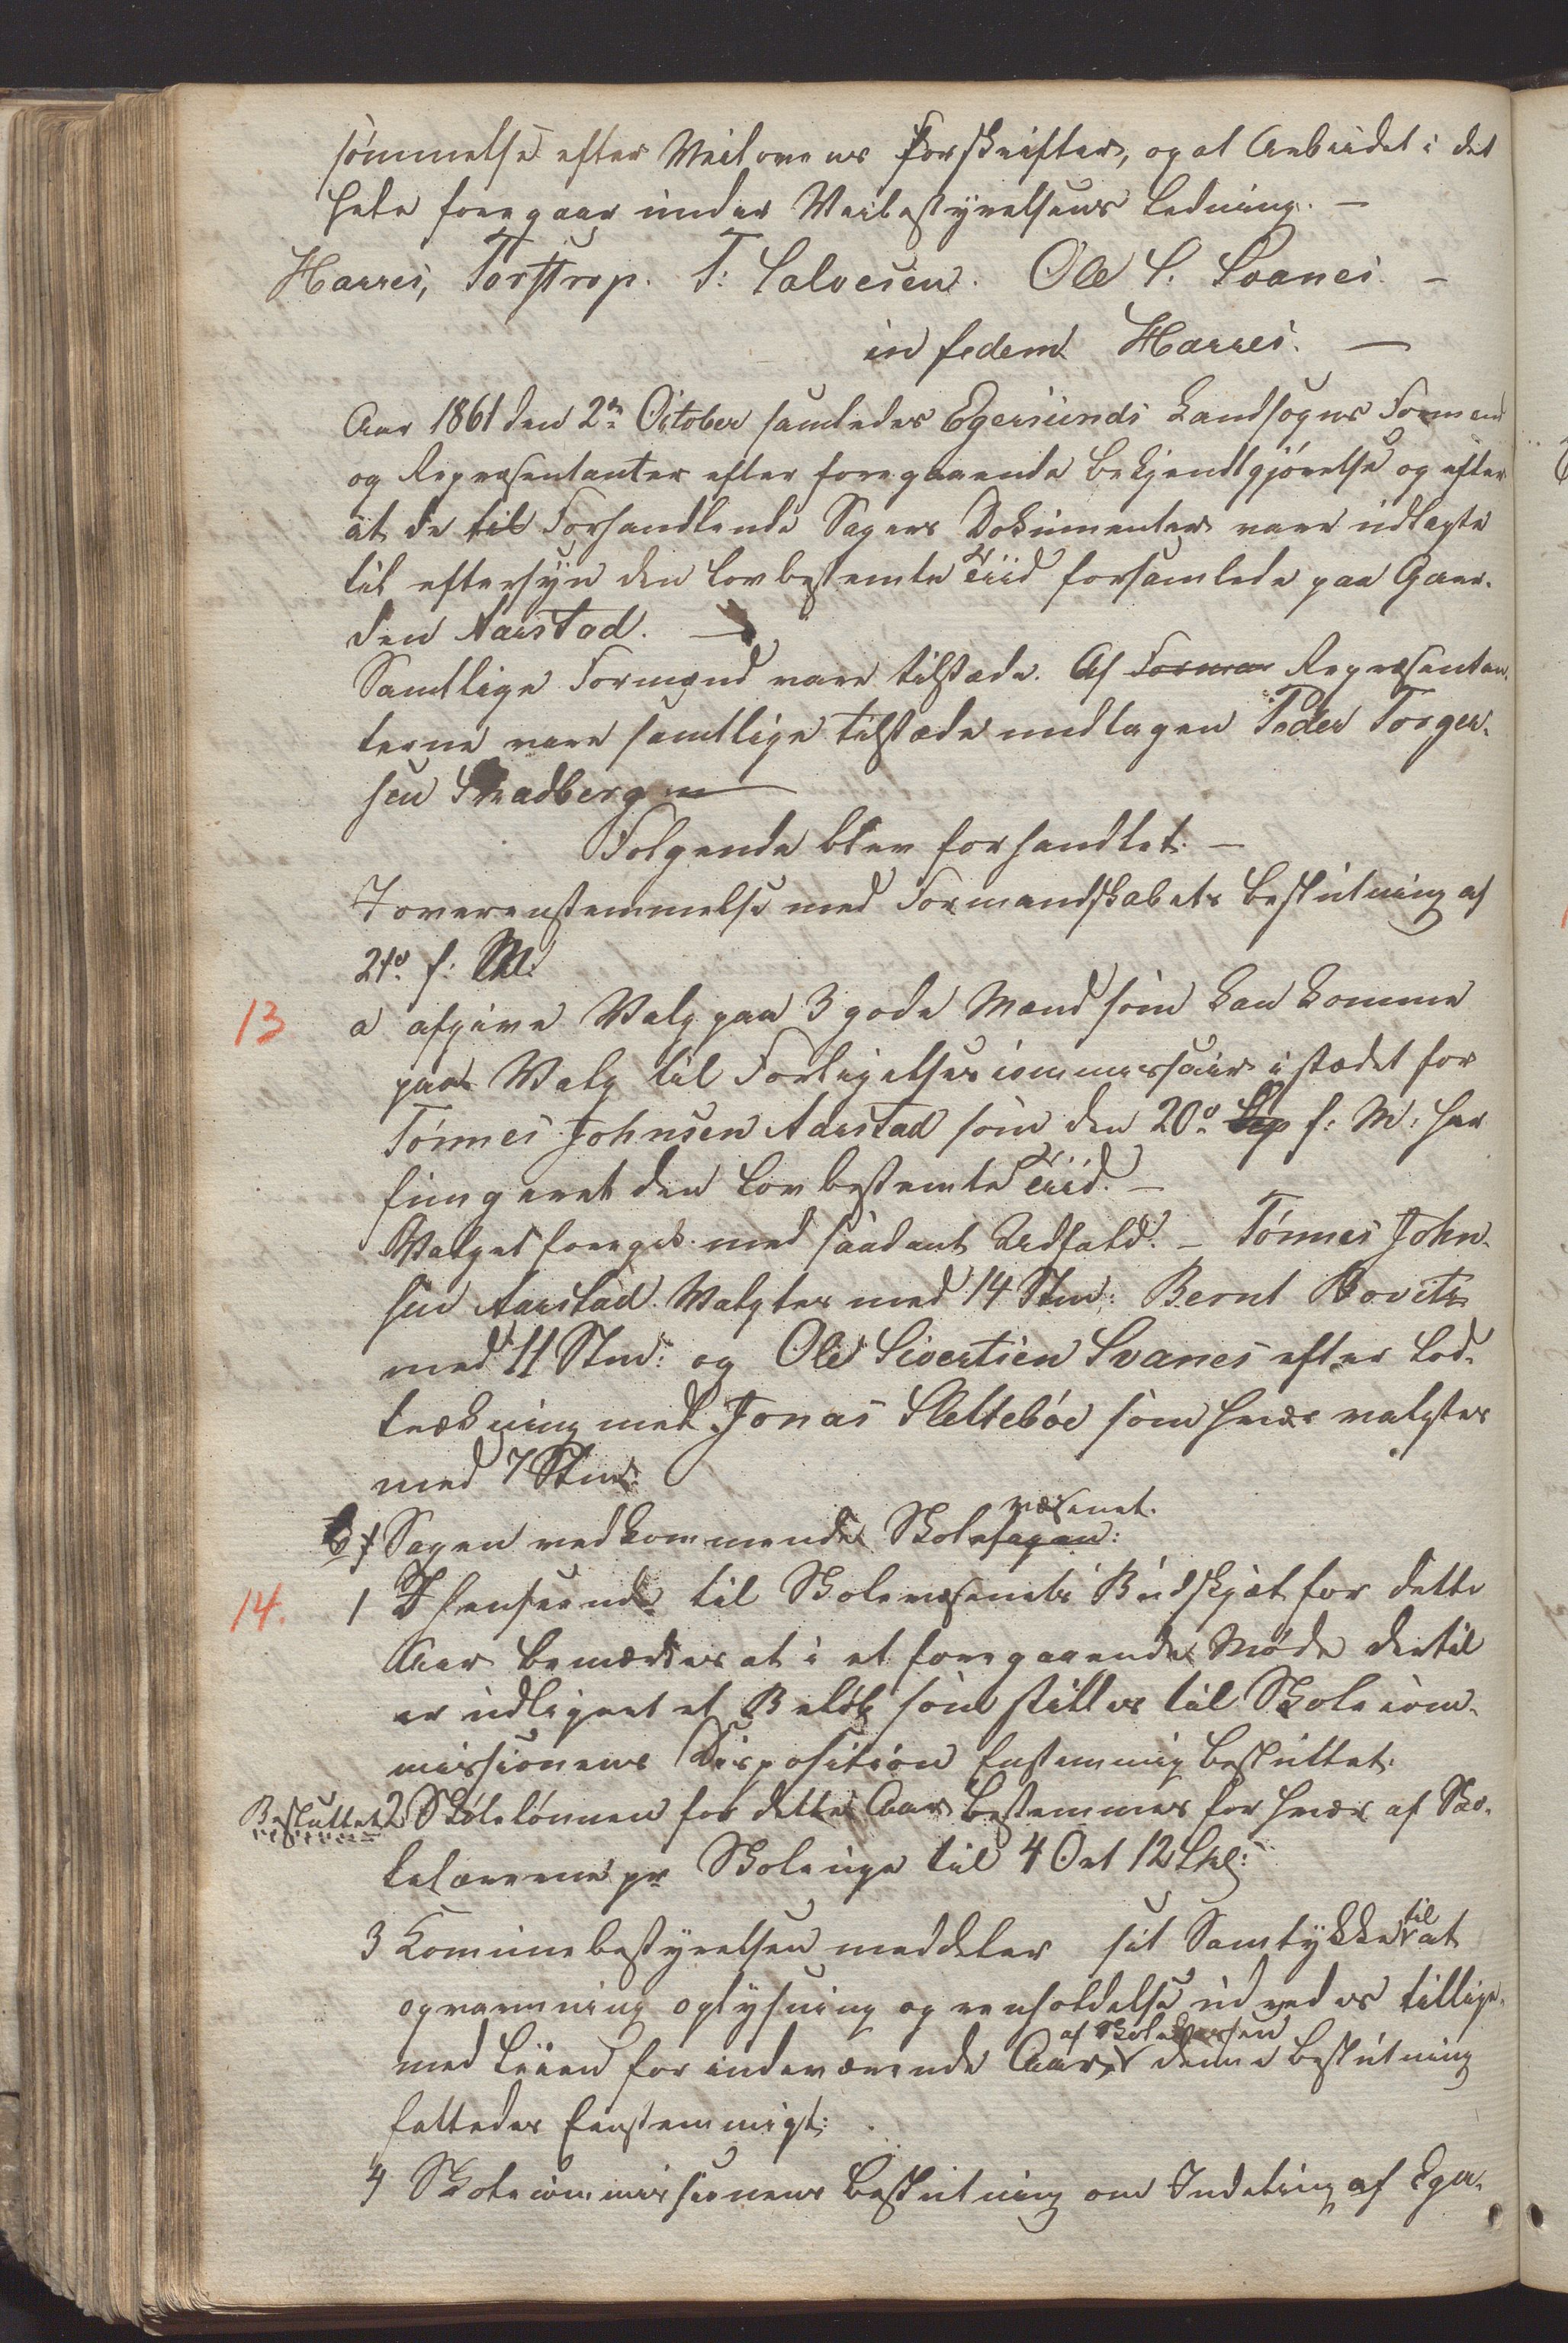 sömmelse efter Veilovens Forskrifter, og at Arbeidet i det
hele foregaar under Veibestyrelsens Ledning. —
Harres, Torstrop. T: Salvesen. Ole S. Svanes. —
in fidem Harres. —
Aar 1861 den 2den October samledes Egersunds Landsogns Formænd
og Repræsentanter efter foregaaende bekjendtgjörelse og efter
at de til Forhandlende Sagers Dokumenter vare udlagte
til eftersyn den lovbestemte Tiid forsamlede paa Gaar-
den Aarstad. —
Samtlige Formænd vare tilstæde. Af Forman Repræsentan-
terne vare samtlige tilstæde undtagen Peder Torger-
sen Skadberg —
Folgende blev forhandlet. —
I overenstemmelse med Formandskabets beslutning af
21de f: M:
13 a afgive Valg paa 3 gode Mænd som kan komme
paa Valg til Forligelsescommissair istædet for
Tönnes Johnsen Aarstad som den 20de Sep f: M: har
fungeret den lovbestemte Tiid. —
Valget foregik med saadant Udfald. — Tönnes John-
sen Aarstad Valgtes med 14 Stm: Bernt Bovitz
med 11 Stm: og Ole Sivertsen Svanes efter Lod-
trækning med Jonas Slettebøe som hver valgtes
med 7 Stm:
b) Sagen vedkommende Skolesagen: væsenet.
14. 1 I henseende til Skolevæsenets Budskjet for dette
Aar bemærkes at i et foregaaende Møde dertil
er udlignet et Beløb som stilles til Skolecom-
missionens Disposition Enstemmig besluttet.
Besluttet 2 Skolelønnen for dette Aar bestemmes for hver af Sko-
lelærerne pr Skoleuge til 4 Ort 12 Skl:
3 Komunebestyrelsen meddeler sit Samtykke til at
opvarmning oplysning og renholdelse udredes tillige-
med Leien for indeværende Aar, af Skolekassen denne beslutning
fattedes Eenstemmigt:
4 Skolecommissionens beslutning om Indeling af Eger-